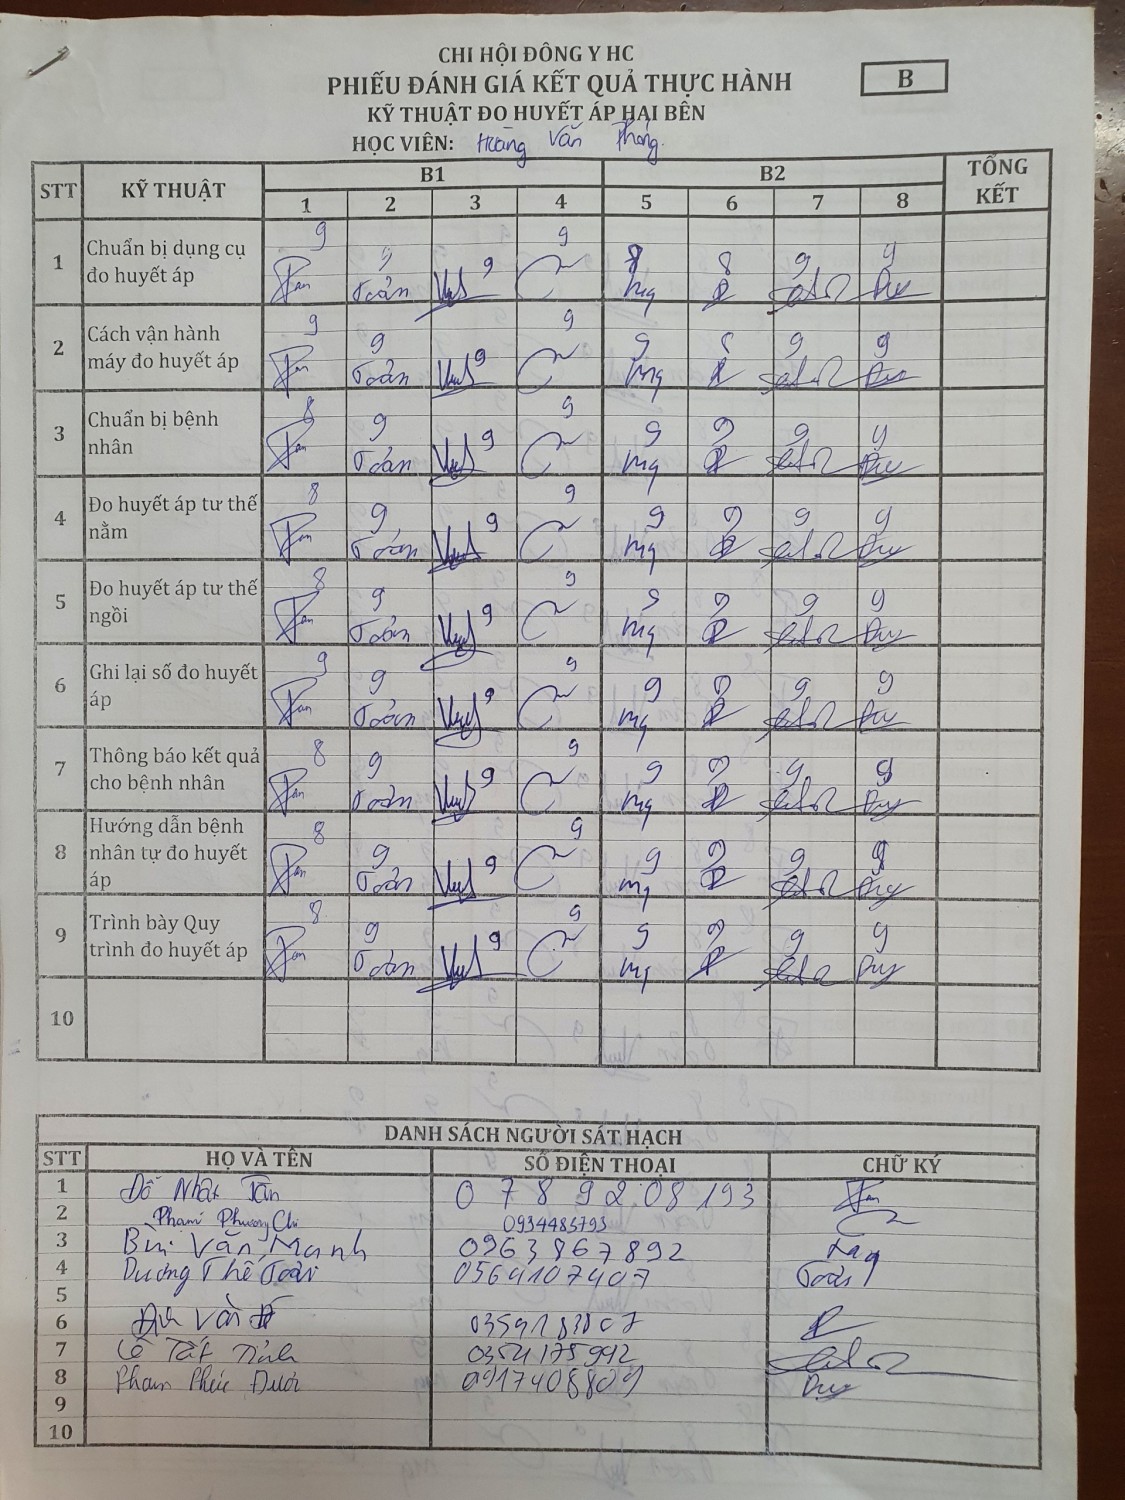 CHI HỘI ĐÔNG Y HC
PHIẾU ĐÁNH GIÁ KẾT QUẢ THỰC HÀNH
B
KỸ THUẬT ĐO HUYẾT ÁP HAI BÊN
HỌC VIÊN: Hoàng Văn
STT KỸ THUẬT B1 B2 TỔNG KẾT
1 2 3 4 5 6 7 8
1 Chuẩn bị dụng cụ đo huyết áp 9 9 9 9 8 8 9 9
Toản
2 Cách vận hành máy đo huyết áp 9 9 9 9 9 8 9 9
Toản
3 Chuẩn bị bệnh nhân 8 9 9 9 9 9 9 9
Toản
4 Đo huyết áp tư thế nằm 8 9 9 9 9 9 9 9
Toản
5 Đo huyết áp tư thế ngồi 8 9 9 9 9 9 9 9
Toản
6 Ghi lại số đo huyết áp 9 9 9 9 9 9 9 9
Toản
7 Thông báo kết quả cho bệnh nhân 8 9 9 9 9 9 9 9
Toản
8 Hướng dẫn bệnh nhân tự đo huyết áp 8 9 9 9 9 9 9 9
Toản
9 Trình bày Quy trình đo huyết áp 8 9 9 9 9 9 9 9
Toản
10
DANH SÁCH NGƯỜI SÁT HẠCH
STT HỌ VÀ TÊN SỐ ĐIỆN THOẠI CHỮ KÝ
1 Đỗ Nhật Tân 0789208193
2 Phạm Phương Chi 0934485793
3 Bùi Văn Mạnh 0963867892
4 Dương Thế Toản 0564107407 Toản
5
6 Văn
7 Lê Tất 0354175942
8 Phạm Phúc
9
10